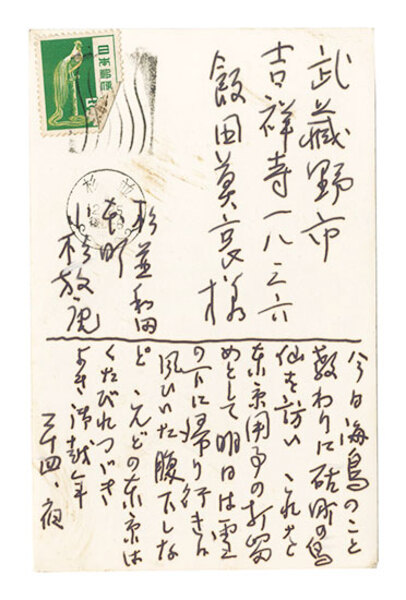 日本郵便
武蔵野市
吉祥寺一八三六
飯田莫哀様
杉並
杉並和田
本町
小杉放庵
今日海鳥のこと
教わりに砧町の鳥
仙を訪い これを
東京用事の打留
めとして明日は雪
の下に帰り行き
風ひいた腹下しな
ど こんどの東京は
くたびれつづき
よき御越年
二十四、夜